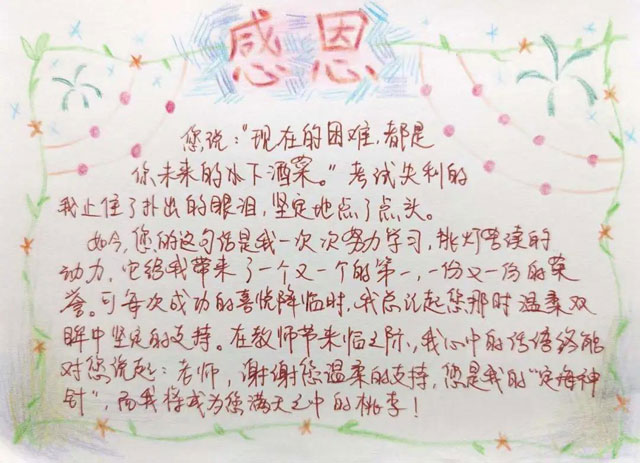 感恩
您说:“现在的困难,都是
你未来的下酒菜。”考试失利的
我止住了扑出的眼泪,坚定地点了点头。
如今,您的这句话是我一次次努力学习,挑灯苦读的
动力,它给我带来了一个又一个的第一,一份又一份的荣
誉。可每次成功的喜悦降临时,我总记起您那时温柔双
眸中坚定的支持。在教师节来临之际,我心中的话语终能
对您说起:老师,谢谢您温柔的支持,您是我的“定海神
针”,而我将成为您满天之中的桃李!